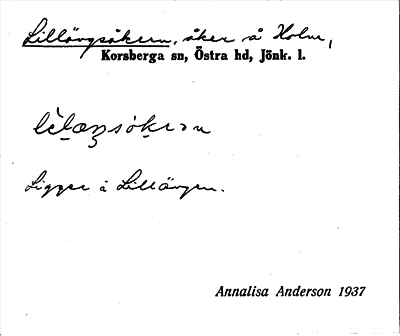 Lillängsåkern, åker å Holm,
Korsberga sn, Östra hd, Jönk. l.
Ligger i Lillängen.
Annalisa Anderson 1937